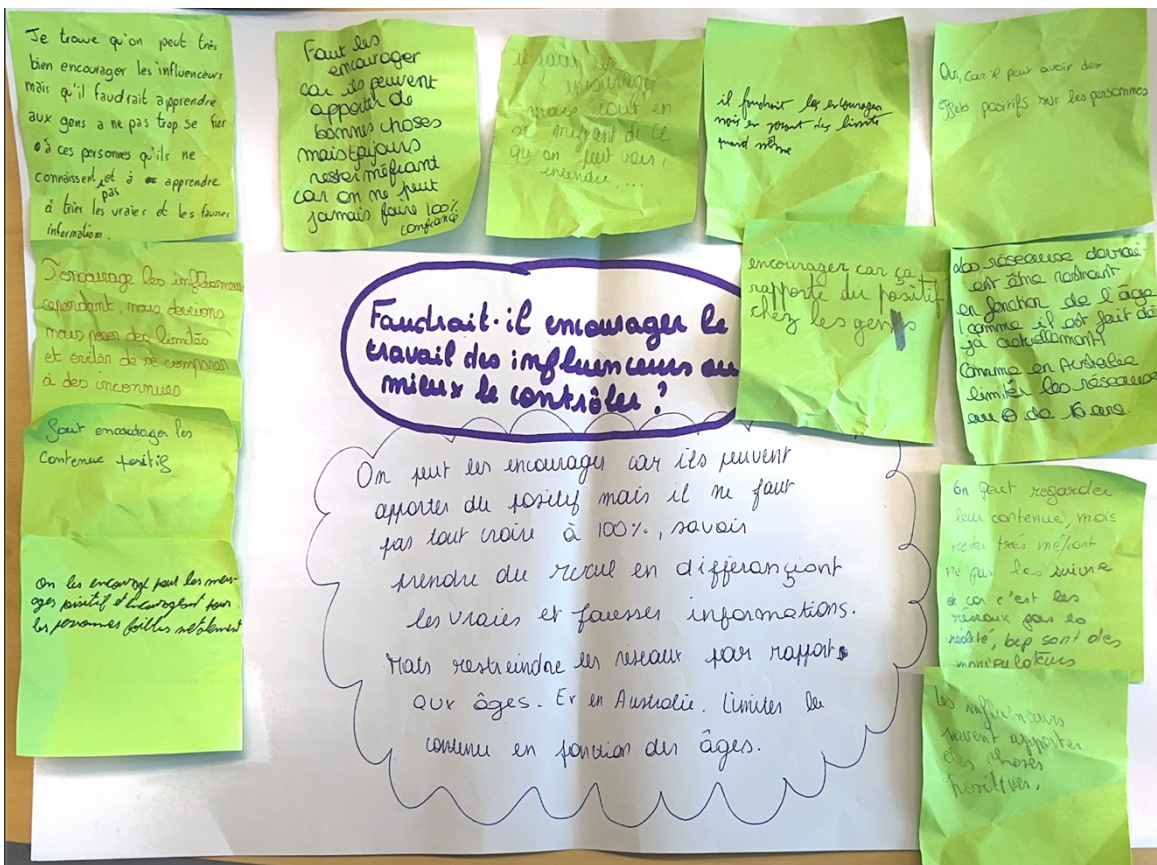 Je trouve qu'on peut très
bien encourager les influenceurs
mais qu'il faudrait apprendre
aux gens a ne pas trop se fier
à ces personnes qu'ils ne
connaissent pas et à apprendre
à trier les vraies et les fausses
information.
Faut les
encourager
car ils peuvent
apporter de
bonnes choses
mais toujours
rester méfiant
car on ne peut
jamais faire 100%
confiance
il faut les
encourager
mais tout en
se méfiant de ce
qu'on peut voir,
entendre,...
il faudrait les encourager
mais en posant des limite
quand même
Oui, car il peut avoir des
effets positifs sur les personnes
J'encourage les influenceurs
cependant, nous devrions
nous poser des limites
et éviter de se comparer
à des inconnues
Faut encourager les
contenue positif
On les encourage pour les mess-
ages positif et encourageant pour
les personnes faibles mentalement
Faudrait-il encourager le
travail des influenceurs ou
mieux le contrôler ?
On peut les encourager car ils peuvent
apporter du positif mais il ne faut
pas tout croire à 100%, savoir
prendre du recul en différançiant
les vraies et fausses informations.
Mais restreindre les réseaux par rapport
aux âges. Ex en Australie. Limiter le
contenu en fonction des âges.
encourager car ça
rapporte du positif
chez les gens
Les réseause devrai-
ent être restraint
en fonction de l'âge
comme il est fait dé-
jà actuellement
comme en Australie
limités les réseause
au - de 16 ans.
On peut regarder
leur contenue, mais
rester très méfiant
ne pas les suivre
car c'est les
réseaux pas la
réalité, bcp sont des
manipulateurs
Les influenceurs
savent apporter
des choses
positives.